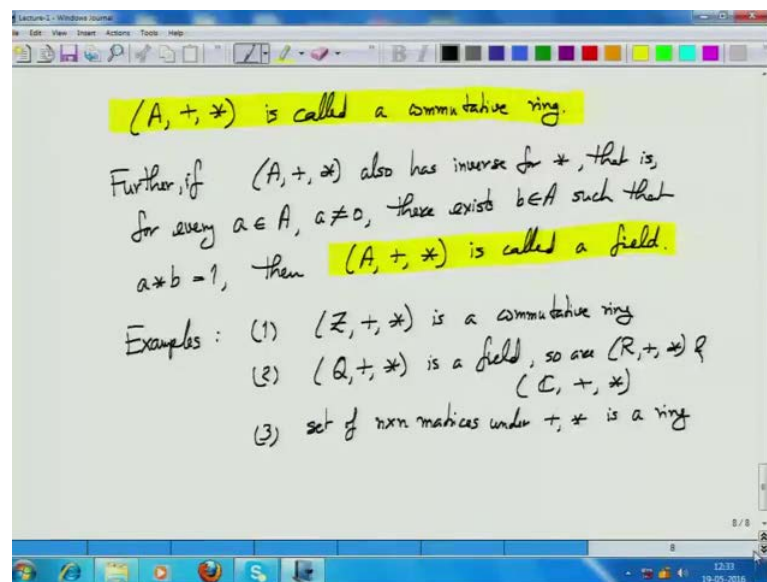 Lecture-1 - Windows Journal
File Edit View Insert Actions Tools Help
(A, +, *) is called a commutative ring.
Further, if (A, +, *) also has inverse for *, that is,
for every a ∈ A, a ≠ 0, there exists b ∈ A such that
a * b = 1, then (A, +, *) is called a field.
Examples : (1) (Z, +, *) is a commutative ring
(2) (Q, +, *) is a field, so are (R, +, *) &
(C, +, *)
(3) set of n×n matrices under +, * is a ring
8/8
8
12:33
19-05-2016